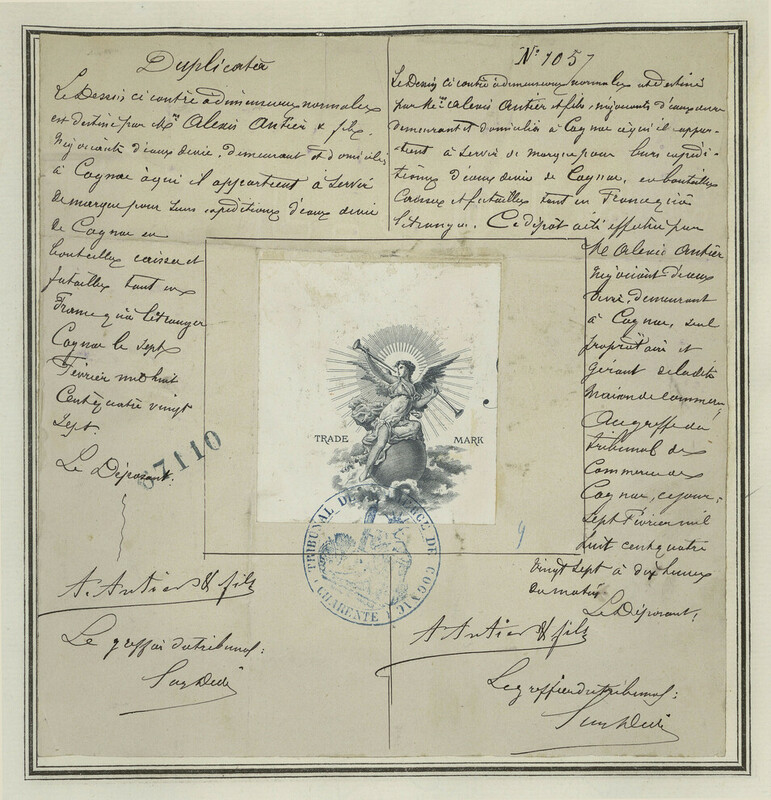 Duplicata
Le Dessin ci contre à dimensions normales
est destiné par Mrs Alexis Antier & fils,
négociants d'eaux devie, demeurant et domiciliés
à Cognac à qui il appartient à servir
de marque pour leurs expéditions d'eaux devie
de Cognac en
bouteilles caisses et
futailles tant en
France qu'à l'étranger
Cognac le sept
Février mil huit
Cent quatre vingt
Sept.
Le Déposant.
67110
A. Antier & fils
Le greffier du tribunal:
No 1057
Le Dessin ci contre à dimensions normales est destiné
par Mrs Alexis Antier et fils, négociants d'eaux devie
demeurant et domiciliés à Cognac à qui il appar-
tient à servir de marque pour leurs expédi-
tions d'eaux devie de Cognac, en bouteilles
Caisses et futailles tant en France qu'à
l'étranger. Ce dépôt a été effectué par
Mr Alexis Antier
négociant d'eaux
devie, demeurant
à Cognac, seul
propriétaire et
gérant de la dite
Maison de commerce,
Au greffe du
tribunal de
Commerce de
Cognac, ce jour,
Sept Février mil
huit cent quatre
vingt sept à dix heures
du matin
Le Déposant,
A Antier & fils
Le greffier du tribunal:
TRADE MARK
TRIBUNAL DE COMMERCE DE COGNAC
CHARENTE